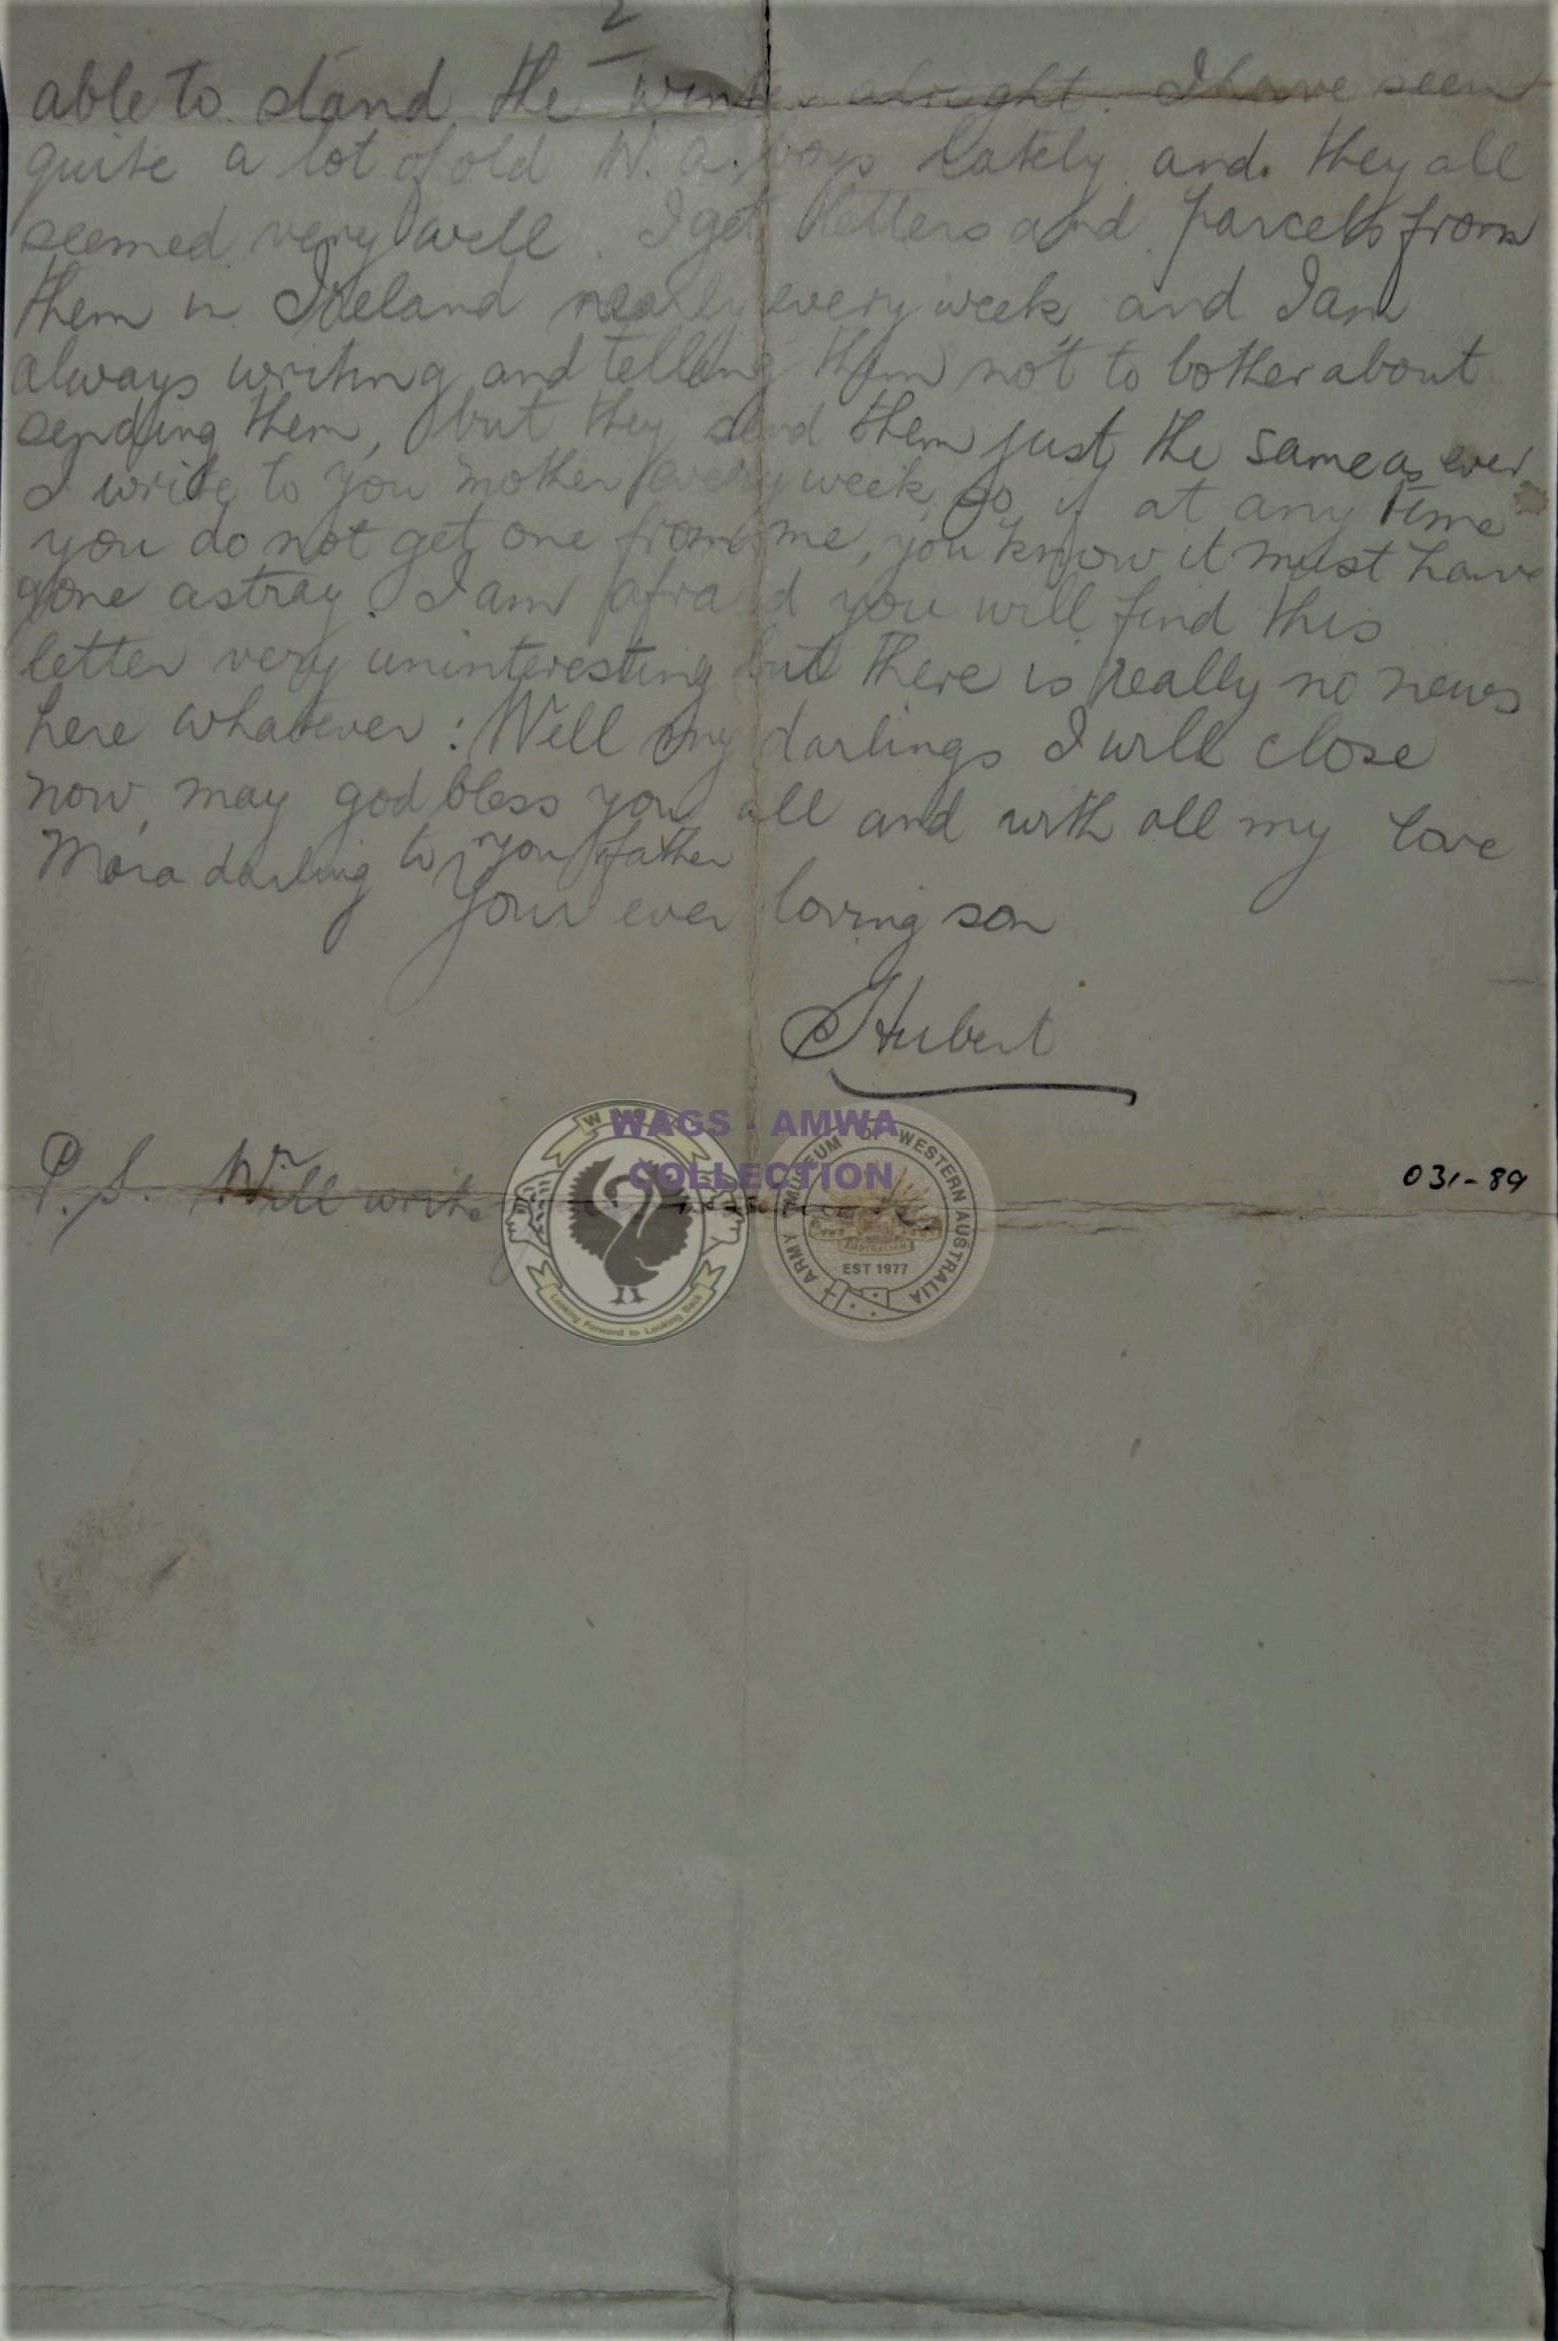 2
able to stand the winter alright. I have seen
quite a lot of old W.A. boys lately and they all
seemed very well. I get letters and parcels from
them in Ireland nearly every week and I am
always writing and telling them not to bother about
sending them, but they send them just the same as ever.
I write to you mother every week, so if at any time
you do not get one from me, you know it must have
gone astray. I am afraid you will find this
letter very uninteresting but there is really no news
here whatever: Well my darlings I will close
now, may god bless you all and with all my love
darling to you father
Your ever loving son
Hubert
WAGS - AMWA
COLLECTION
P.S. Will write
031-89
ARMY MUSEUM OF WESTERN AUSTRALIA
AUSTRALIAN
EST 1977
Looking Forward to Looking Back